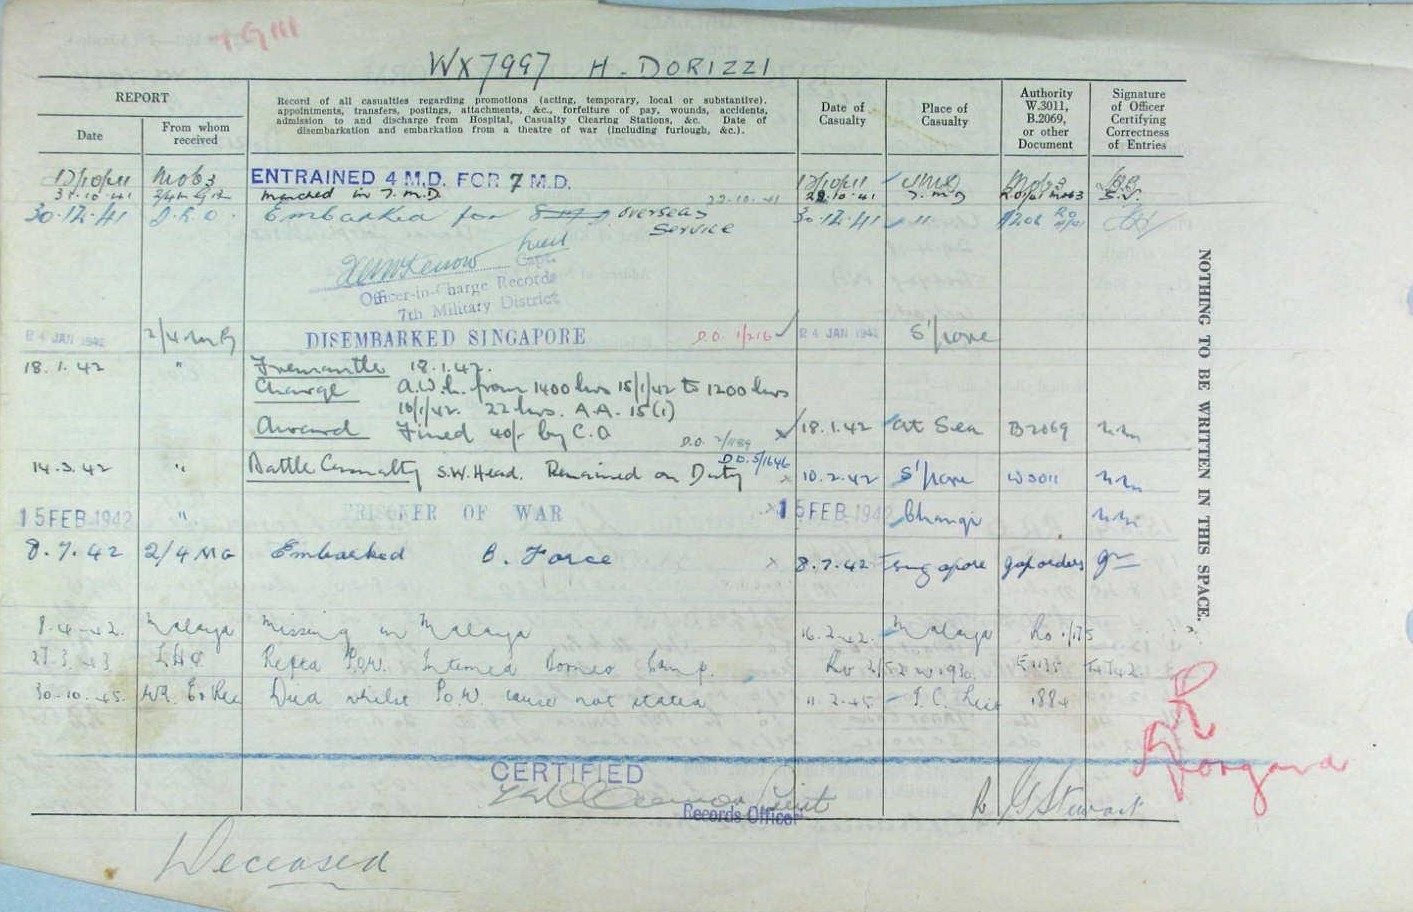 WX7997 H. DORIZZI
REPORT
Date
From whom received
Record of all casualties regarding promotions (acting, temporary, local or substantive), appointments, transfers, postings, attachments, &c., forfeiture of pay, wounds, accidents, admission to and discharge from Hospital, Casualty Clearing Stations, &c. Date of disembarkation and embarkation from a theatre of war (including furlough, &c.).
Date of Casualty
Place of Casualty
Authority W.3011, B.2069, or other Document
Signature of Officer Certifying Correctness of Entries
Mob3 ENTRAINED 4 M.D. FOR 7 M.D.
Marched in 7.M.D. 7.M.D
30.12.41 D.R.O. Embarked for overseas service 30.12.41 "
Lieut
Capt.
Officer-in-Charge Records
7th Military District
24 JAN 1942 DISEMBARKED SINGAPORE 24 JAN 1942 S'pore
18.1.42 " Fremantle 18.1.42.
Charge A.W.L. from 1400 hrs 15/1/42 to 1200 hrs
16/1/42. 22 hrs. A.A. 15(1)
Award Fined 40/- by C.O 18.1.42 At Sea B2069
14.3.42 " Battle Casualty S.W. Head. Remained on Duty 10.2.42 S'pore W3011
15 FEB 1942 " PRISONER OF WAR 15 FEB 1942 Changi
8.7.42 2/4 MG Embarked B. Force 8.7.42 Singapore
Malaya Missing in Malaya 16.2.42. Malaya
27.3.43 LHQ P.O.W. Interned Borneo Camp.
30.10.45. Died whilst P.O.W. cause not stated 11.2.45
CERTIFIED
Lieut
Records Officer
Stewart
Deceased
NOTHING TO BE WRITTEN IN THIS SPACE.